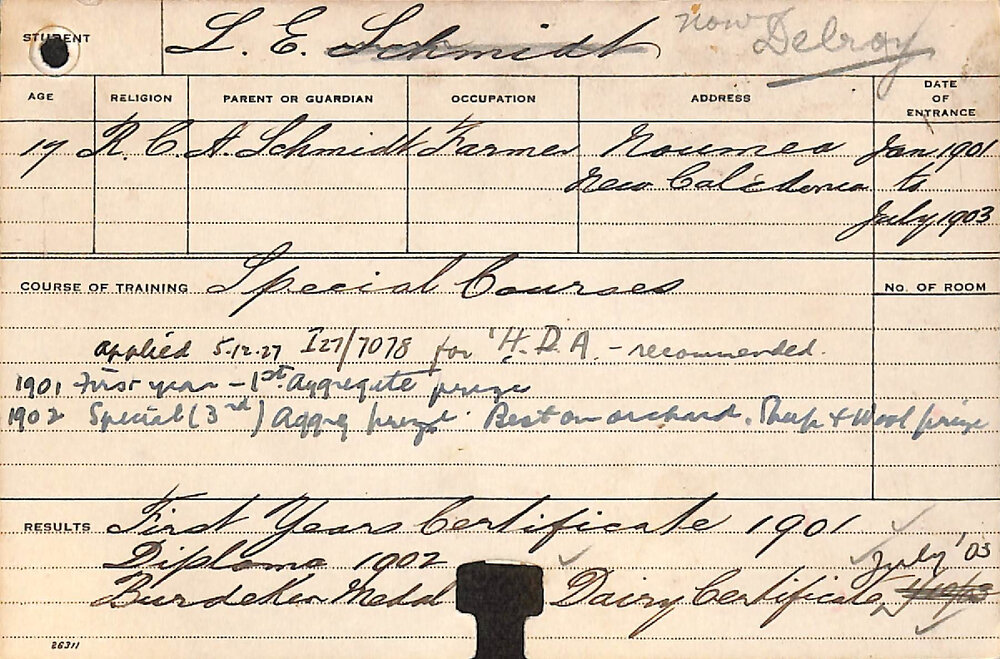 STUDENT L. E. Schmidt now Delroy
AGE RELIGION PARENT OR GUARDIAN OCCUPATION ADDRESS DATE OF ENTRANCE
17 R. C. A. Schmidt Farmer Noumea Jan 1901
New Caledonia to
July 1903
COURSE OF TRAINING Special Courses No. OF ROOM
applied 5.12.27 I27/7078 for "H.D.A. - recommended.
1901 First year - 1st Aggregate prize
1902 Special (3rd) Aggreg prize. Best on orchard. Sheep & Wool prize
RESULTS First Years Certificate 1901
Diploma 1902 July '03
Burdekin Medal Dairy Certificate
26311